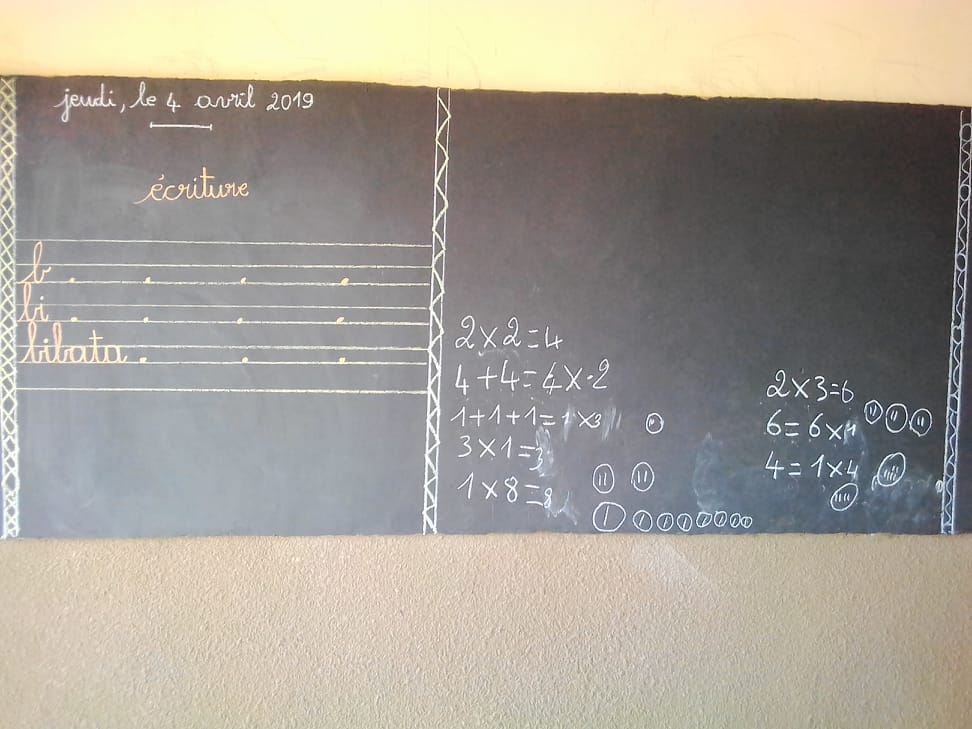 jeudi, le 4 avril 2019
écriture
b . . . .
bi . . . .
bibata . . .
2×2=4
4+4=4×2
1+1+1=1×3
3×1=3
1×8=8
2×3=6
6=6×1
4=1×4